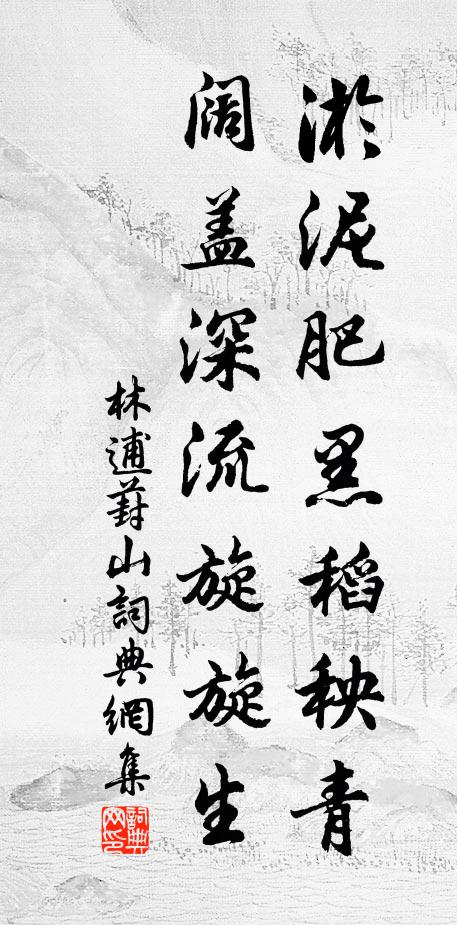 淤泥肥黑稻秧青
阔盖深流旋旋生
林逋葑山詞典網集
詞典網印